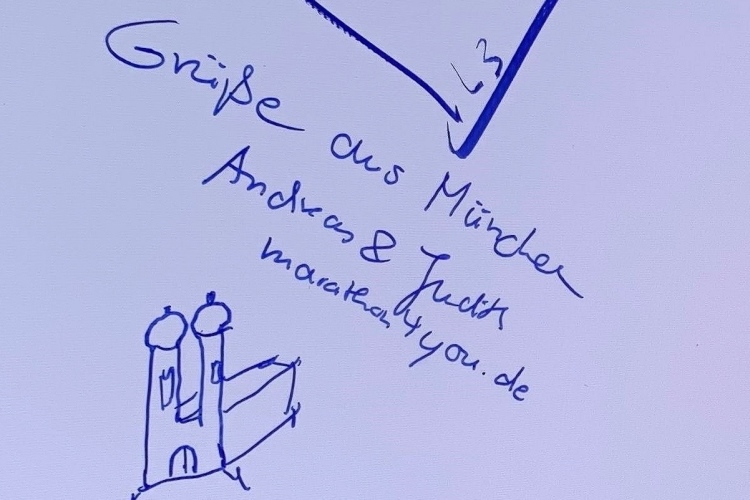 Grüße aus München
Andreas & Judith
marathon4you.de